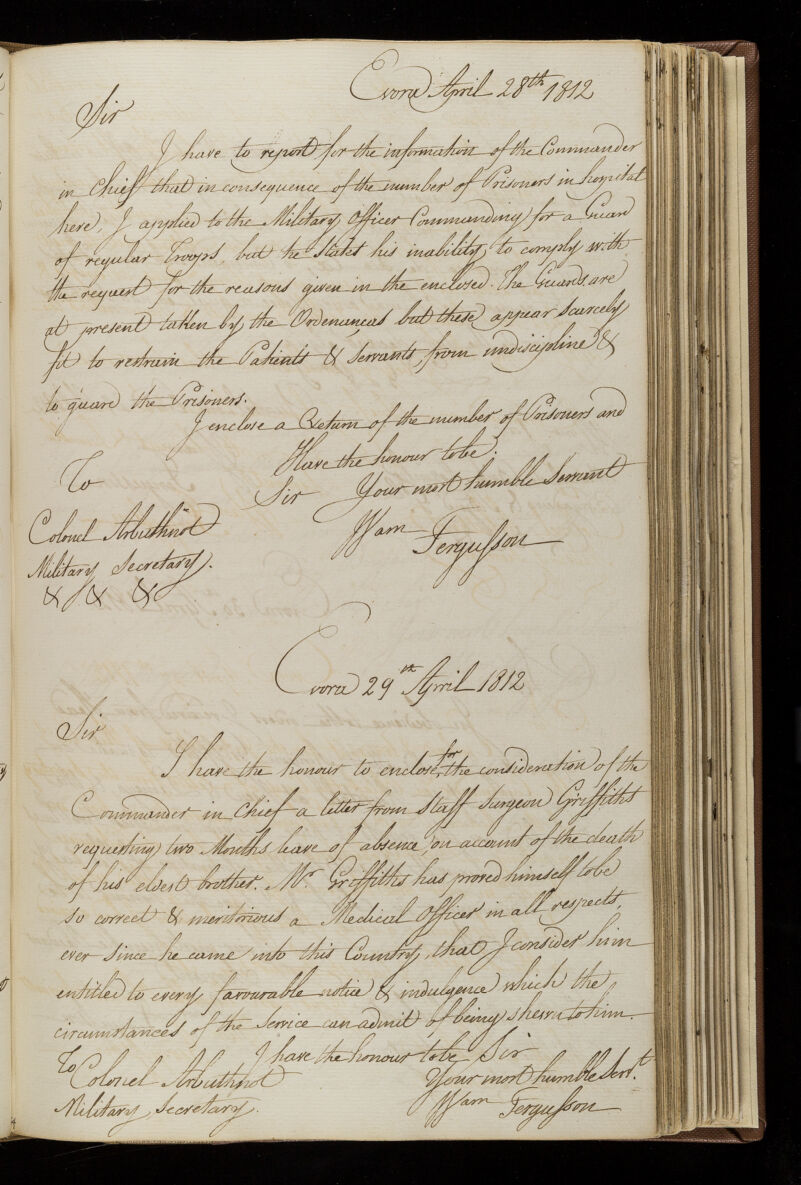 Evora April 28th 1812
Sir
I have to report for the information of the Commander
in Chief that in consequence of the number of Prisoners in hospital
here, I applied to the Military Officer Commanding for a Guard
of regular Troops, but he States his inability to comply with
the request for the reasons given in the enclosed. The Guards are
at present taken by the Ordenanças but these appear scarcely
fit to restrain the Patients & Servants, from undiscipline &
to guard the Prisoners.
I enclose a Return of the number of Prisoners and
Have the honour to be.
Sir Your most humble Servant
Wam Fergusson
To
Colonel Arbuthnot
Military Secretary.
& & &
Evora 29th April 1812
Sir
I have the honour to enclose, for the consideration of the
Commander in Chief a letter from Staff Surgeon Griffiths
requesting two Months leave of absence, on account of the death
of his eldest brother. Mr Griffiths has proved himself to be
so correct & meritorious a Medical Officer in all respects,
ever since he came into this Country, that I consider him
entitled to every favourable notice & indulgence which the
circumstances of the Service can admit, of being shewn to him.
I have the honour to be Sir
Your most humble Servt.
Wam Fergusson
To
Colonel Arbuthnot
Military Secretary.